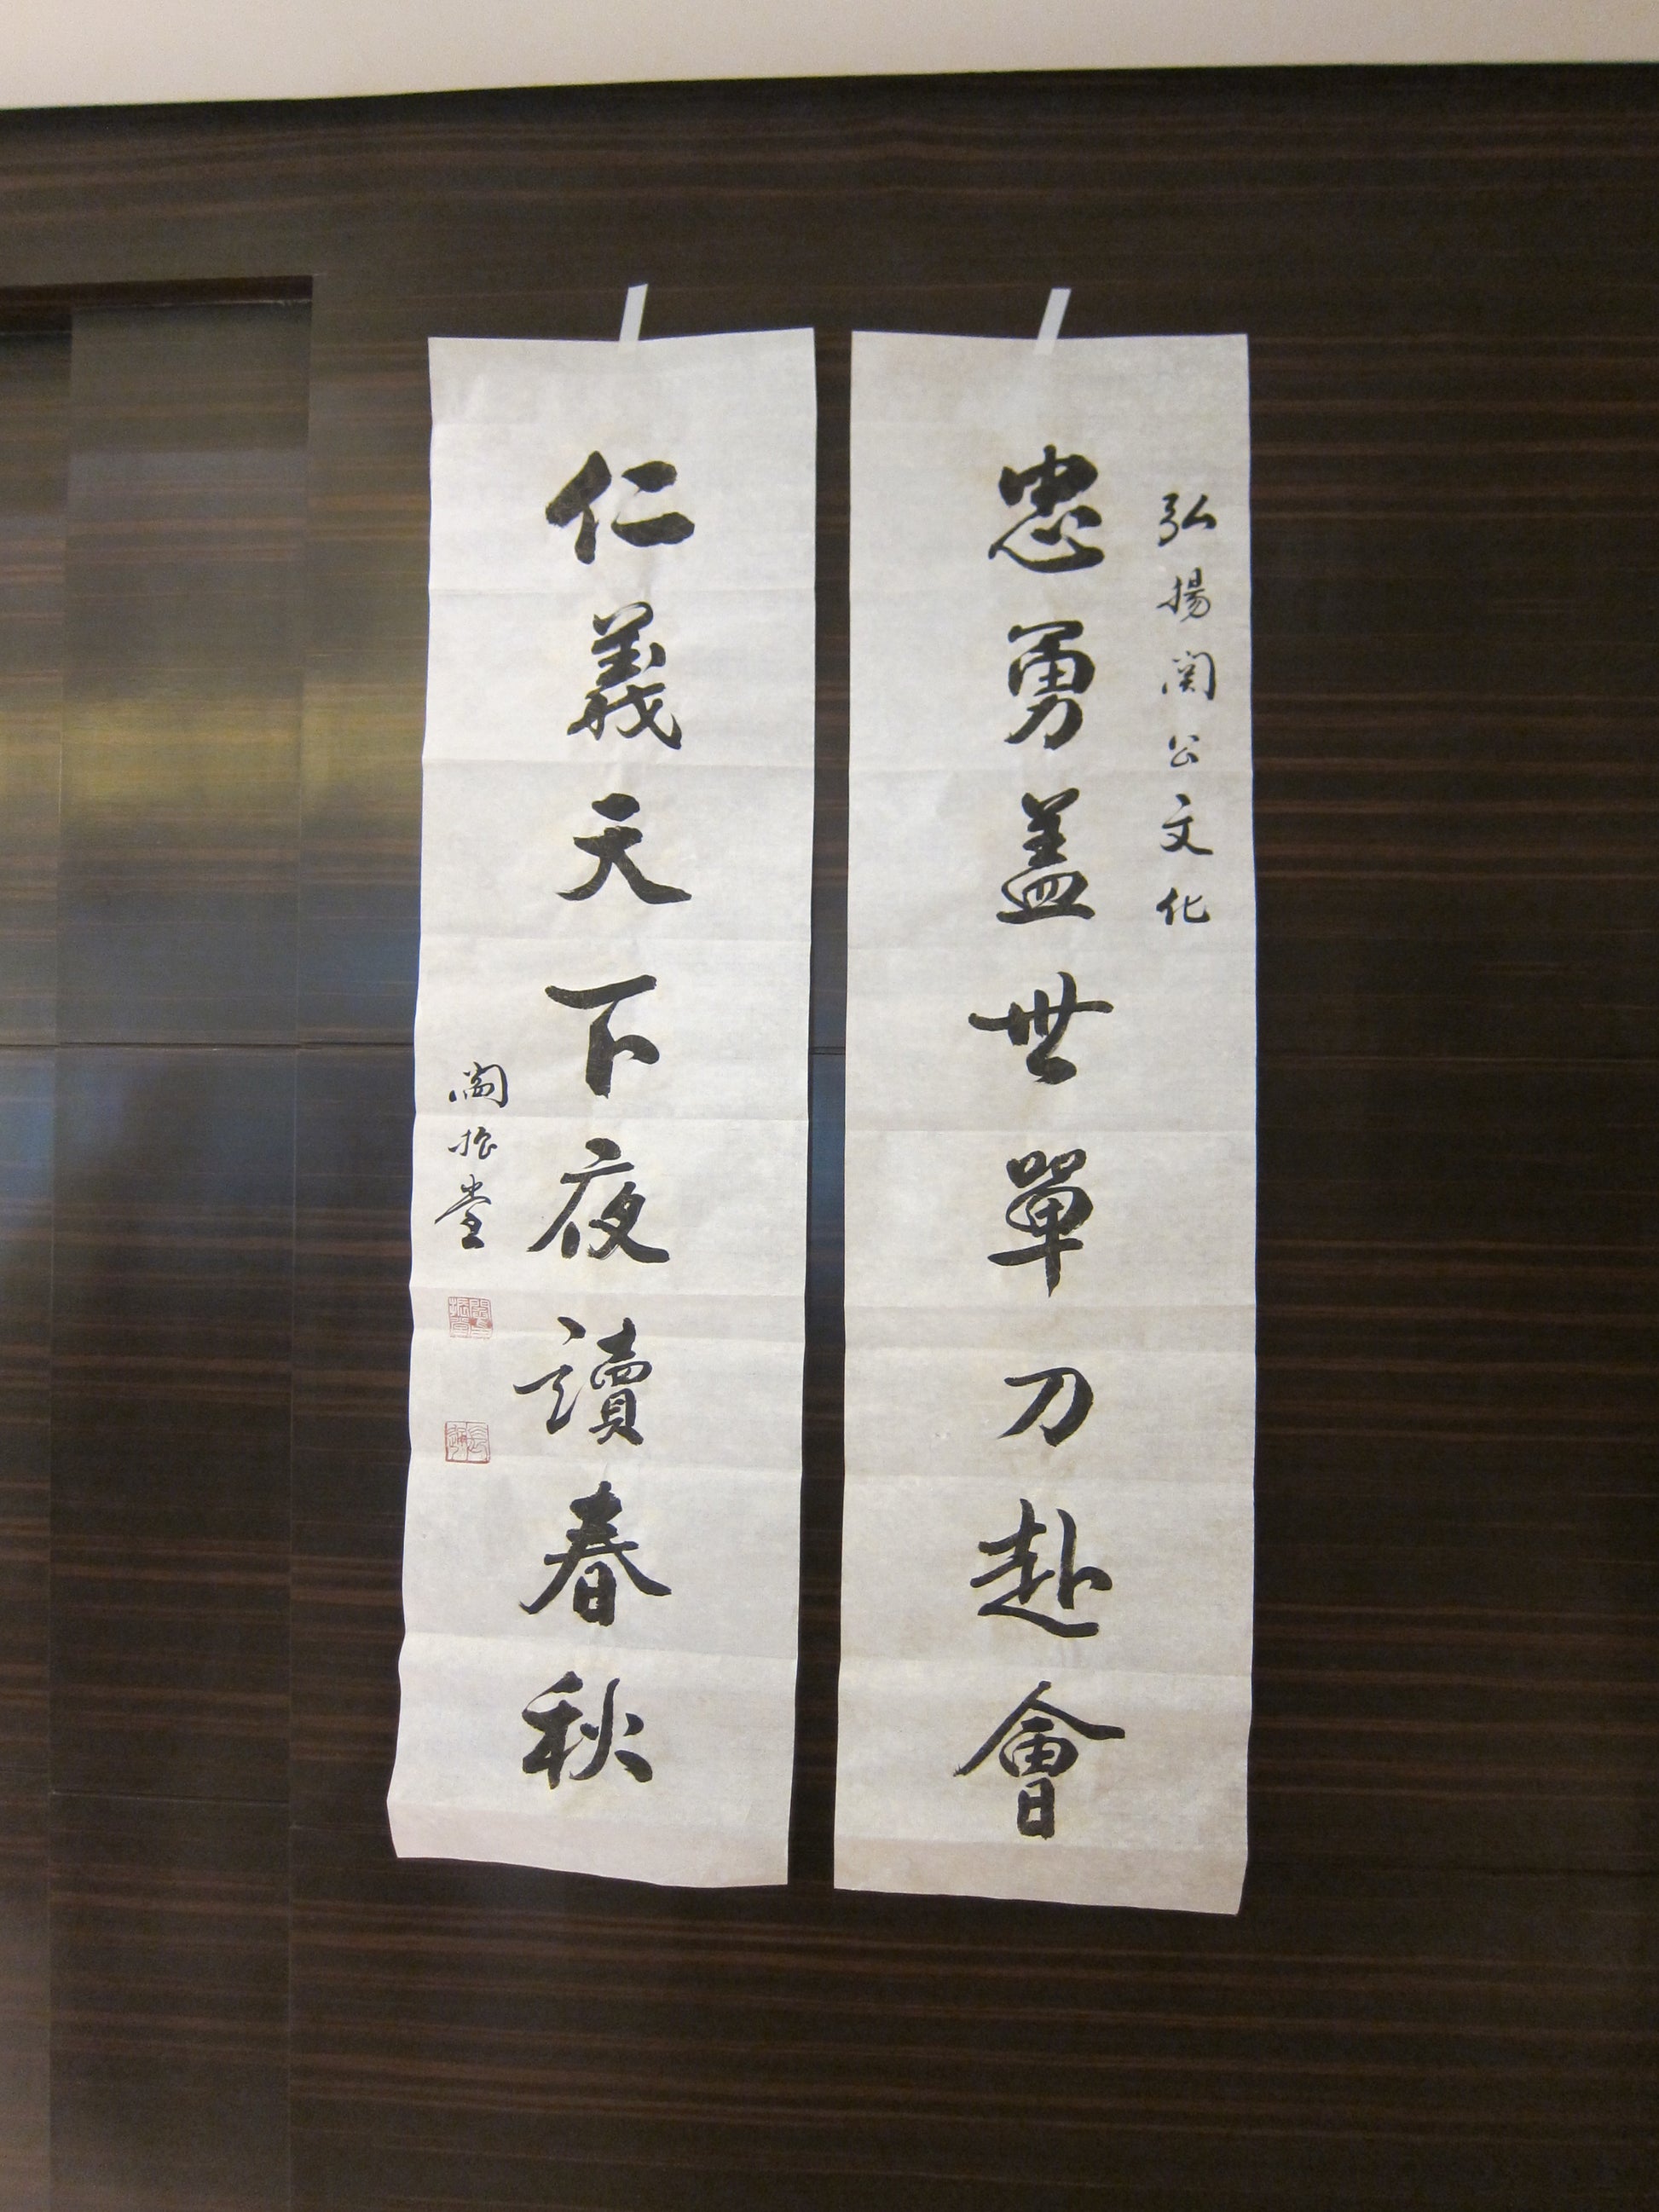 弘揚関公文化
忠勇盖世單刀赴會
仁義天下夜讀春秋
闞振堂